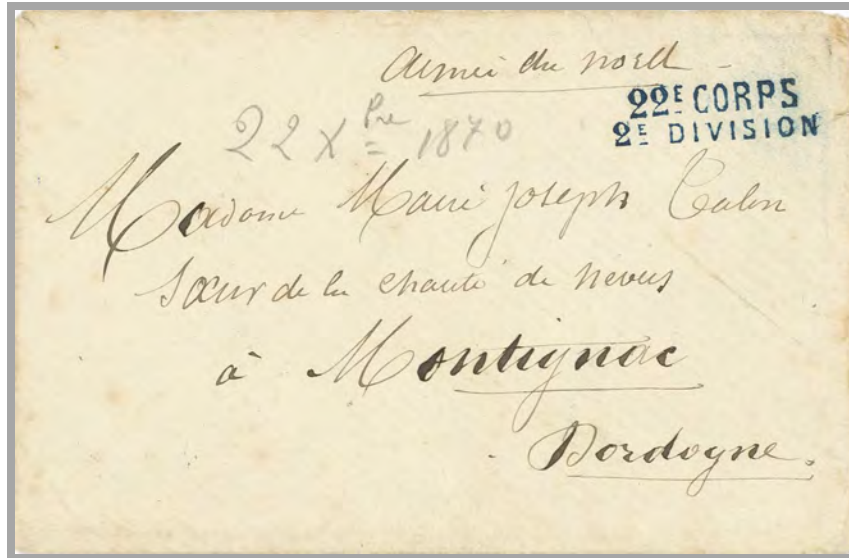 Armée du nord
22E CORPS
2E DIVISION
22 Xbre 1870
Madame Marie joseph
Sœur de la charité de nevers
à Montignac
Dordogne.